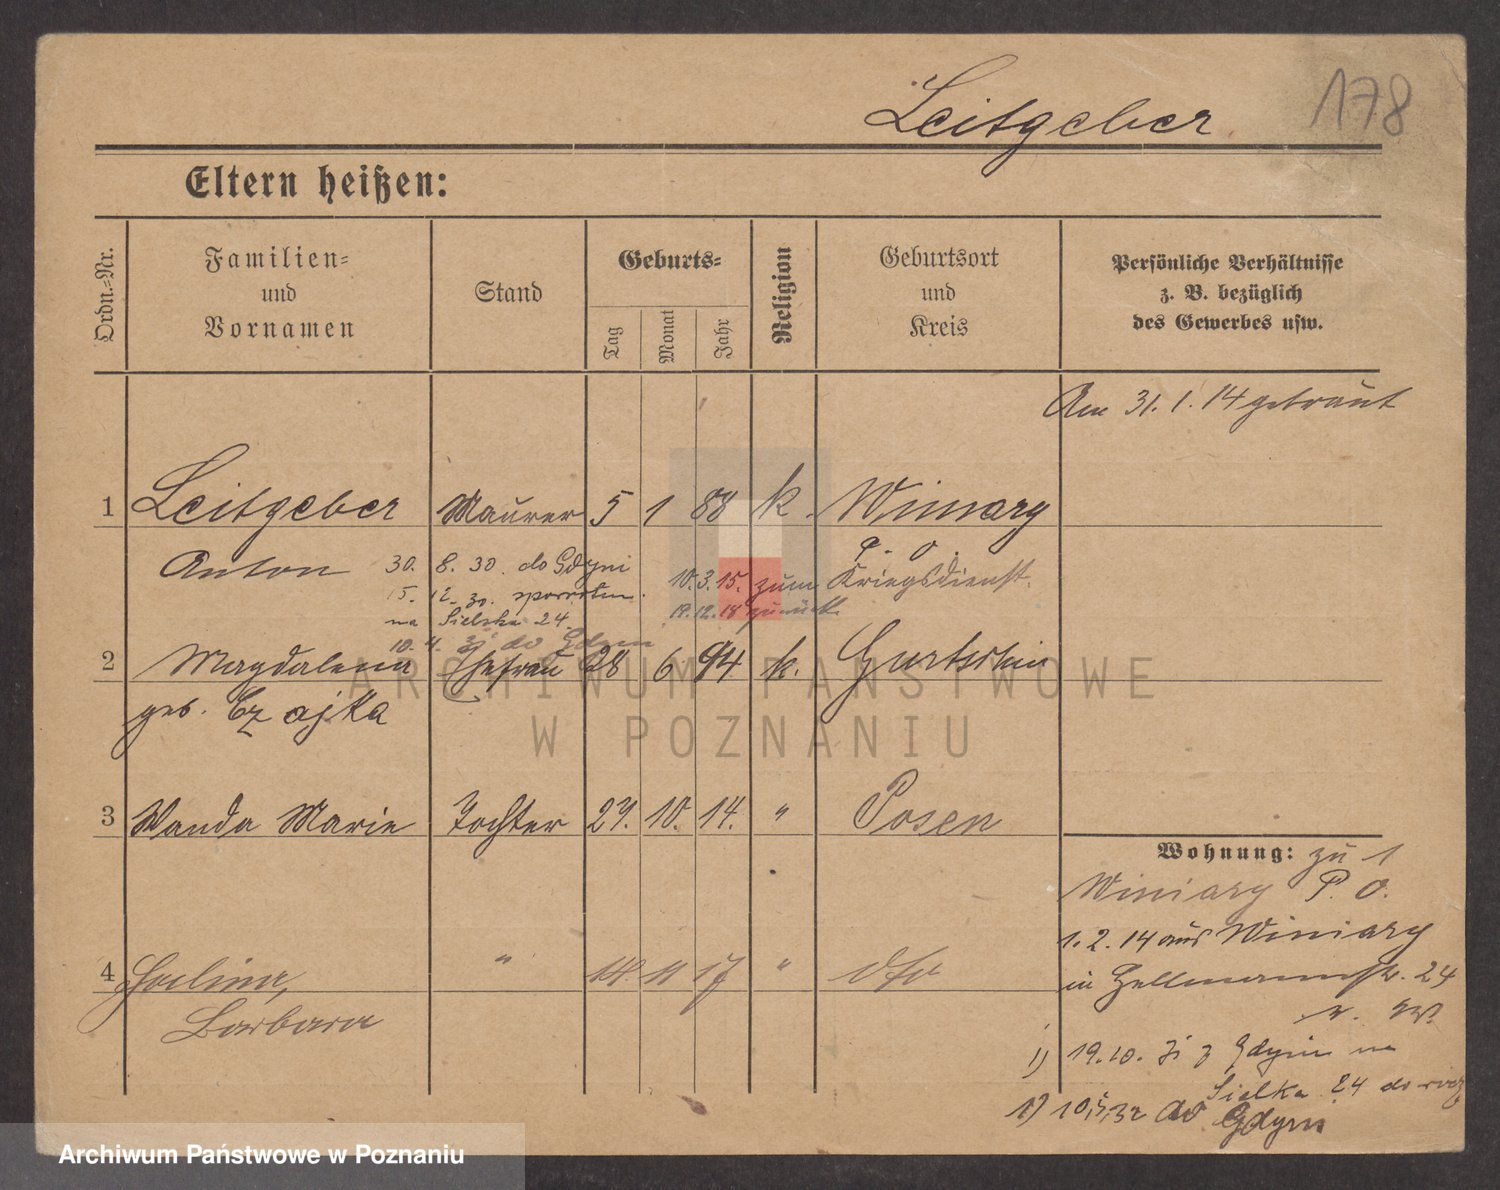 Leitgeber
178
Eltern heißen:
Ordn.-Nr.
Familien-
und
Vornamen
Stand
Geburts-
Tag
Monat
Jahr
Religion
Geburtsort
und
Kreis
Persönliche Verhältnisse
z. B. bezüglich
des Gewerbes usw.
Am 31. 1. 14 getraut
1 Leitgeber Maurer 5 1 88 k. Winiary
P. O.
Anton
30. 8. 30. do Gdyni
10.3.15. zum Kriegsdienst.
15. 12. 30. na Sielska 24.
19.12.18 zurück
10. 4. 31 do Gdyni
2 Magdalena Ehefrau 28 6 94 k. Gurtschin
geb. Czajka
3 Wanda Marie Tochter 27. 10. 14. " Posen
Wohnung: zu 1
Winiary P. O.
1. 2. 14 aus Winiary
in Hellmannstr. 24
4 Halina, " 14 11 17 " dto
Barbara
1) 19.10. 31 z Gdyni na
Sielska 24 do
1) 10.5.32 do Gdyni
ARCHIWUM PAŃSTWOWE
W POZNANIU
Archiwum Państwowe w Poznaniu